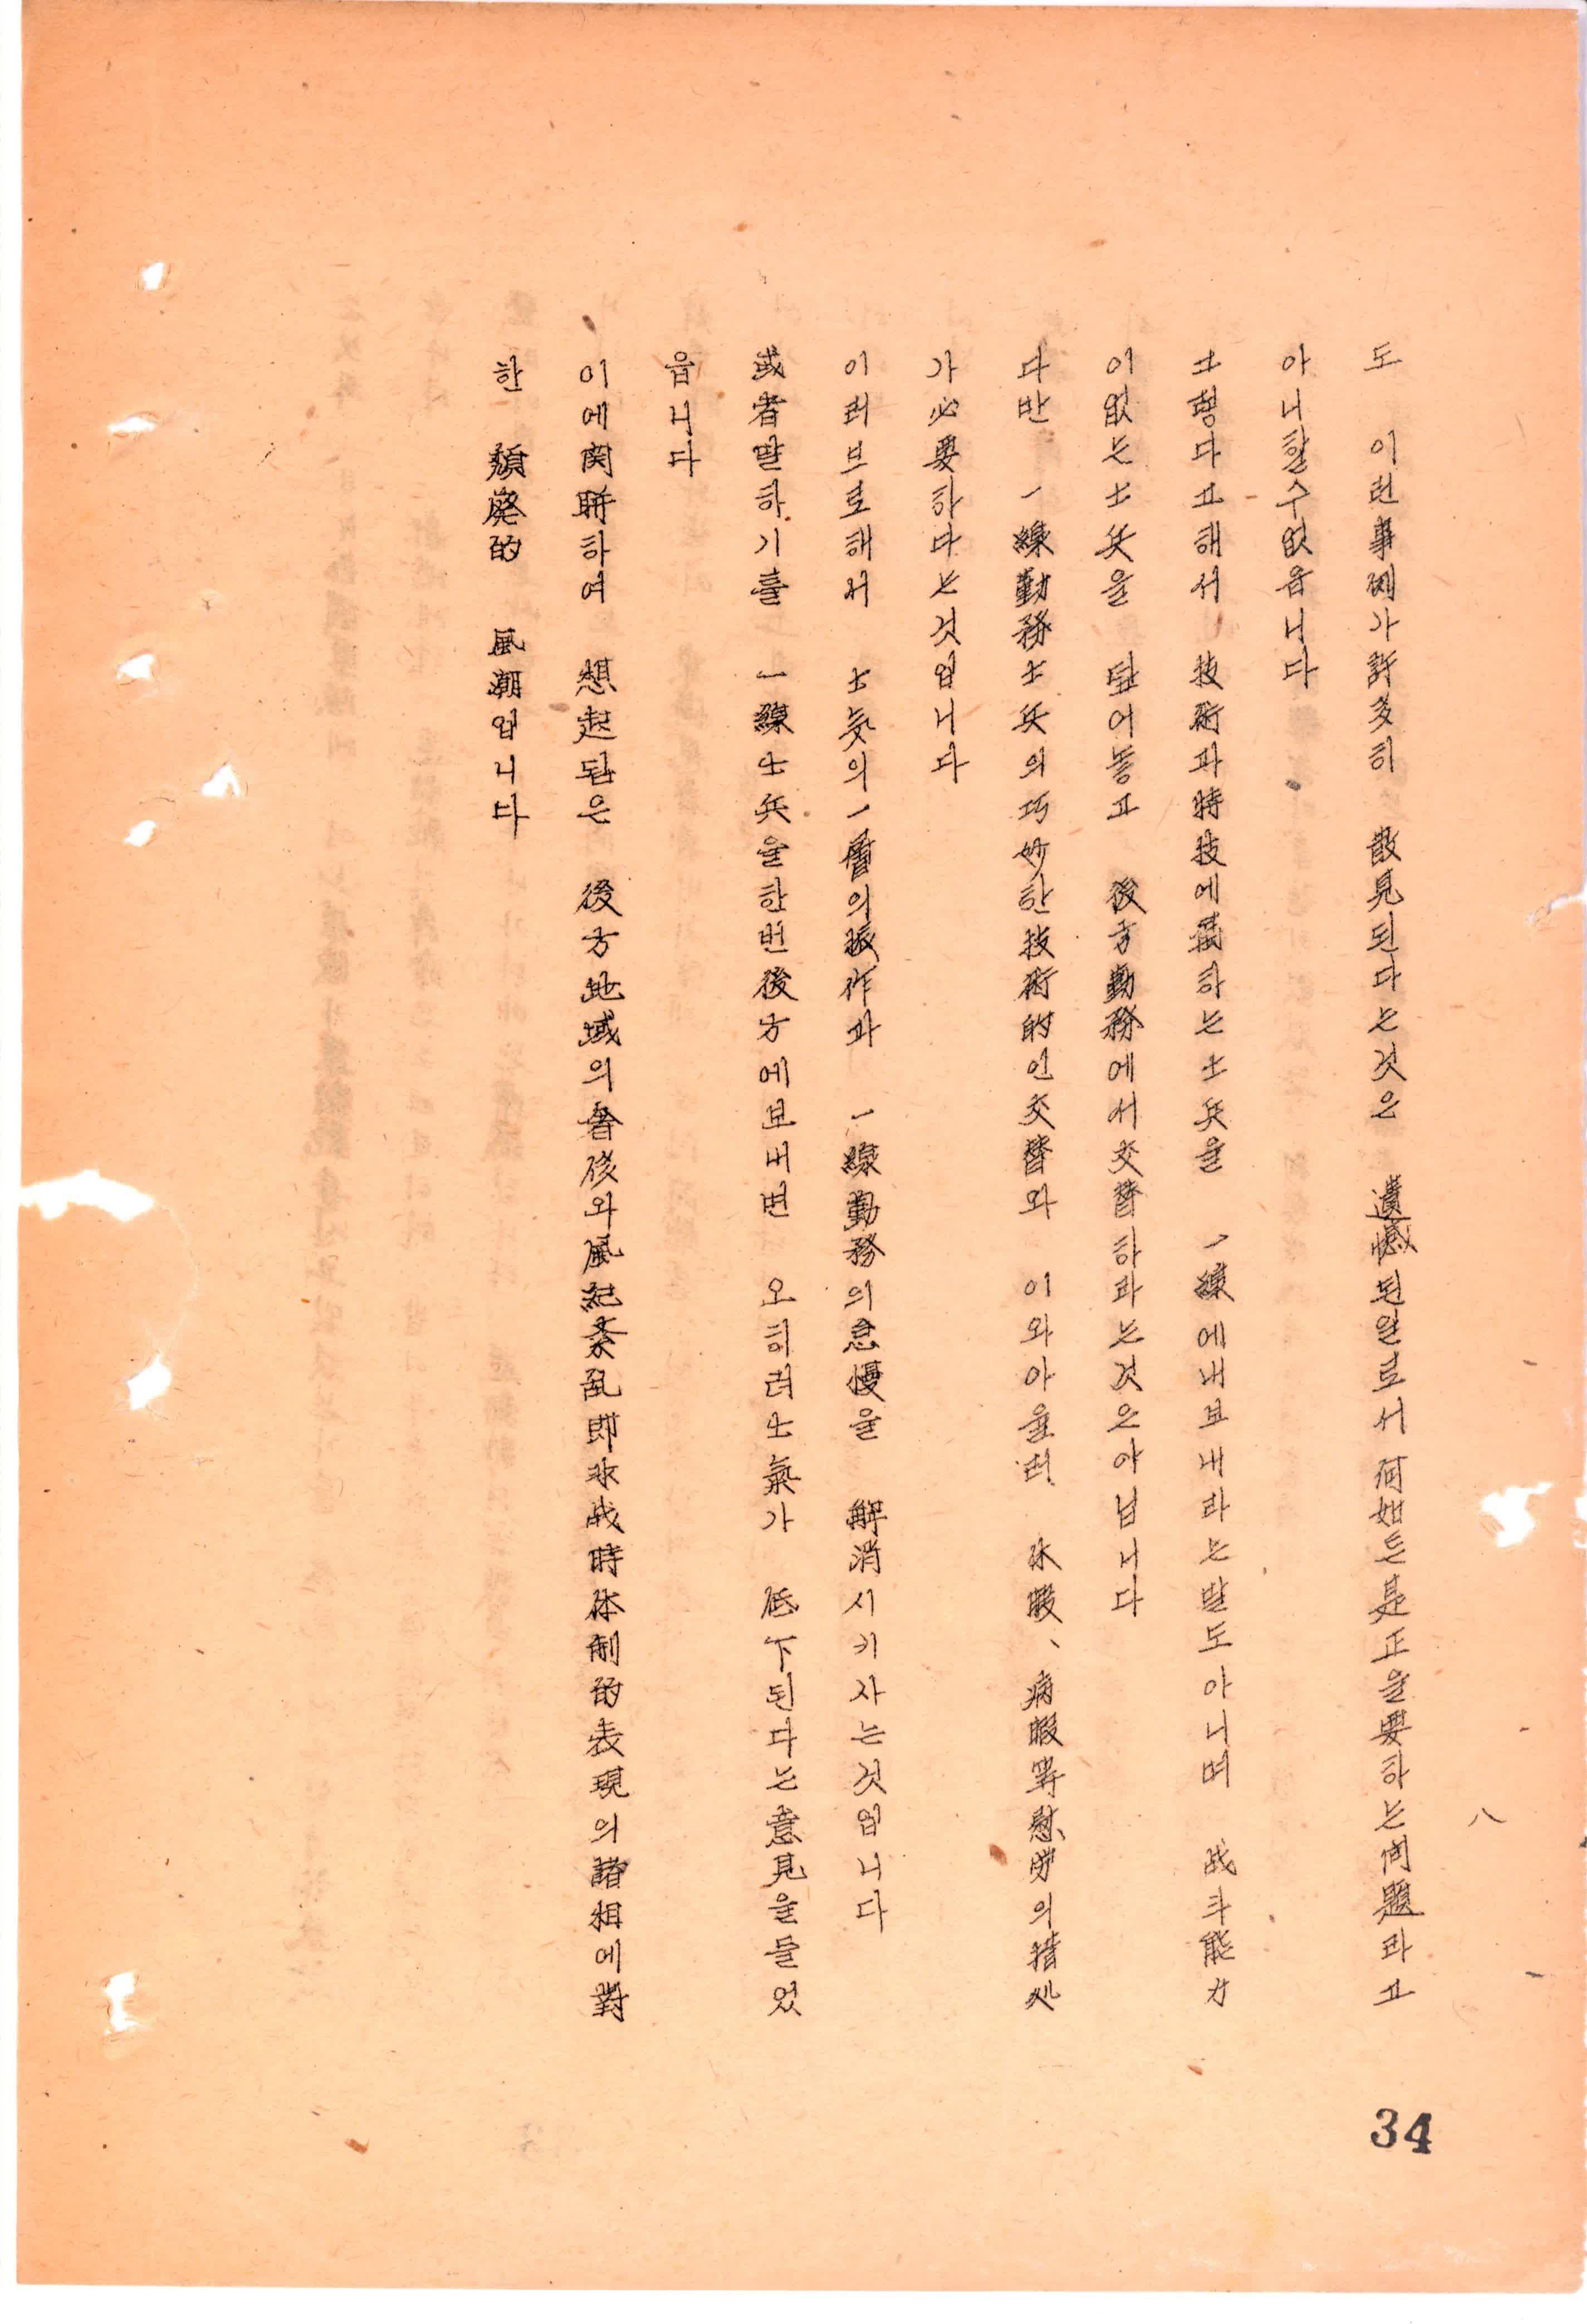 八
도 이런事例가許多히 散見된다는것은 遺憾된일로서 何如튼是正을要하는問題라고
아니할수없읍니다
그렇다고해서 技術과特技에 하는士兵을 一線에내보내라는말도아니며 战斗能力
이없는士兵을 덮어놓고 後方勤務에서交替하라는것은아닙니다
다만 一線勤務士兵의巧妙한技術的인交替와 이와아울러 休暇、病暇等慰勞의措処
가必要하다는것입니다
이러므로해서 士気의一層의振作과 一線勤務의怠慢을 解消시키자는것입니다
或者말하기를 一線士兵을한번後方에보내면 오히려士氣가 低下된다는意見을들었
읍니다
이에関聯하여 想起됨은 後方地域의奢侈와風紀紊乱即非战時体制的表現의諸相에對
한 頹廃的 風潮입니다
34